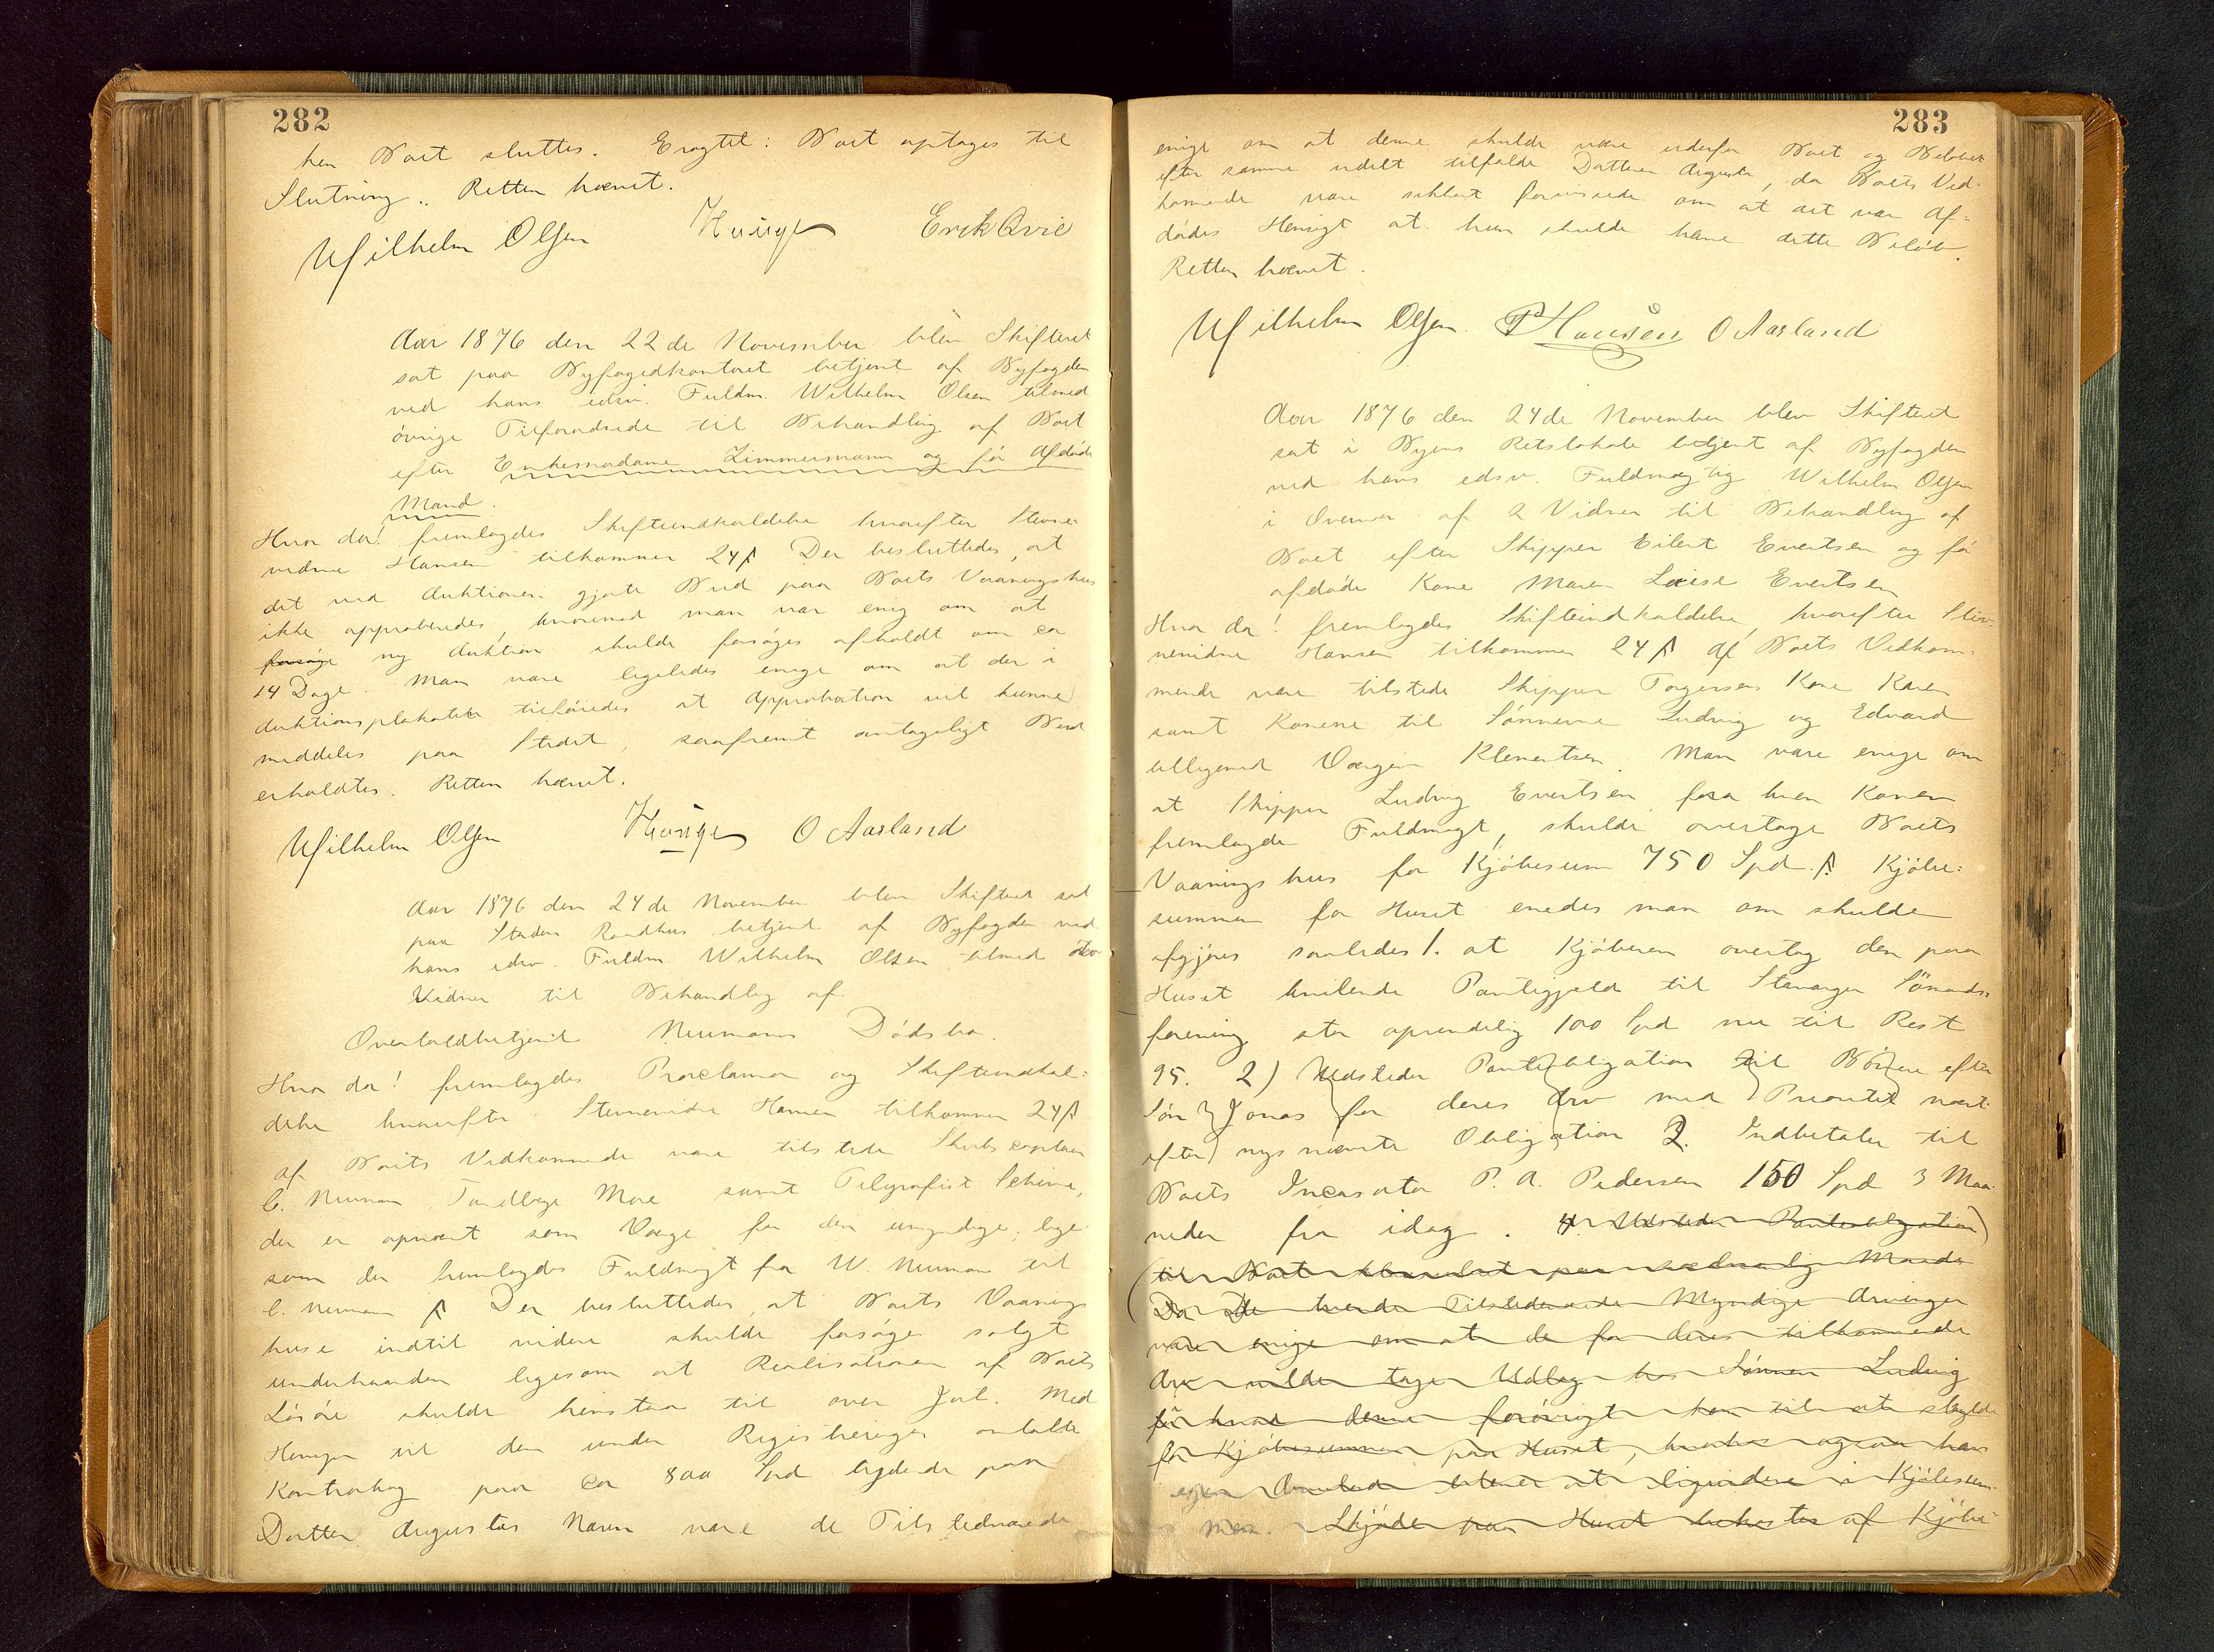 282
hen Boet sluttes. Eragtet: Boet optages til
Slutning.. Retten hævet.
Wilhelm Olsen Hauge Erik Qvie
Aar 1876 den 22de November blev Skifteret
sat paa Byfogedkontoret betjent af Byfogden
ved hans edsv. Fuldm. Wilhelm Olsen tilmed
øvrige Tilforordnede til Behandling af Boet
efter Enkemadame Zimmermann og før Afdøde
Mand.
Hvor da! fremlagdes Skifteindkaldelse hvorefter Stevne-
vidne Hansen tilkommer 24 β Der besluttedes, at
det ved Auktionen gjorte Bud paa Boets Vaaningshus
ikke approberedes, hvorimod man var enig om at
forsøge ny Auktion skulde forsøges afholdt om ca
14 Dage. Man vare ligeledes enige om at der i
Auktionsplakaten tilføiedes at Approbation vil kunne
meddeles paa Stedet, saafremt antageligt Bud
erholdtes. Retten hævet.
Wilhelm Olsen Hauge O Aarland
Aar 1876 den 24de November blev Skifteret sat
paa Stadens Raadhus betjent af Byfogden ved
hans edsv. Fuldm Wilhelm Olsen tilmed
Vidner til Behandlig af
Overtoldbetjent Neumanns Dødsbo.
Hvor da! fremlagdes Proclama og Skifteindkal-
delse hvorefter Stevnevidne Hansen tilkommer 24 β
af Boets Vedkommende vare tilstede Skibscaptain
C. Neuman Tandlæge Moe samt Telegrafist Schiøve,
der er opnævnt som Værge for den umyndige, lige
som der fremlagdes Fuldmagt fra W. Neuman til
C. Neuman β Der besluttedes, at Boets Vaanings
huse indtil videre skulde forsøges solgt
underhaanden ligesom at Realisationen af Boets
Løsøre skulde henstaa til over Jul. Med
Hensyn til den under Registreringen omtalte
Kontrabog paa ca 800 Spd lydende paa
Datter Augustas Navn vare de Tilstedeværende
283
enige om at denne skulde være udenfor Boet og Beløbet
efter samme udelt tilfalde Datteren Augusta, da Boets Ved-
kommende vare sikkert forvissede om at det var Af-
dødes Hensigt at hun skulde have dette Beløb.
Retten hævet.
Wilhelm Olsen P Hanssen O Aarland
Aar 1876 den 24de November blev Skifteret
sat i Byens Retslokale betjent af Byfogden
ved hans edsv. Fuldmægtig Wilhelm Olsen
i Overvær af 2 Vidner til Behandlig af
Boet efter Skipper Eilert Evertsen og før
afdøde Kone Maren Loise Evertsen
Hvor da! fremlagdes Skifteindkaldelse, hvorefter Stev-
nevidne Hansen tilkommer 24 β Af Boets Vedkom-
mende vare tilstede Skipper Torgersens Kone Karen
samt Konerne til Sønnerne Ludvig og Edvard
tilligemed Værgen Klementsen. Man vare enige om
at Skipper Ludvig Evertsen, fra hvem Konen
fremlagde Fuldmagt, skulde overtage Boets
Vaaningshus for Kjøbesum 750 Spd. β. Kjøbe-
summen for Huset enedes man om skulde
afgjøres saaledes 1. at Kjøberen overtog den paa
Huset hvilende Pantegjeld til Stavanger Sømands-
forening stor oprindelig 100 Spd nu til Rest
95. 2) Udsteder Panteobligation til Børnene efter
Søn Jonas for deres Arv med Prioritet næst
efter nysnævnte Obligation 3. Indbetaler til
Boets Incasator P. A. Pedersen 150 Spd 3 Maa-
neder fra idag. 4. Udsteder Panteobligation
til Boet paa sædvanlig Maade
Da De tvende Tilstedeværende Myndige Arvinger
vare enige om at de for deres tilkommende
Arv vilde tage Udlæg hos Sønnen Ludvig
for hvad denne forøvrigt kom til at skylde
for Kjøbesummen paa Huset, hvorhos ogsaa hans
egen Arvelod bliver at liquidere i Kjøbesum-
men. Skjøde paa Huset bekostes af Kjøbe-